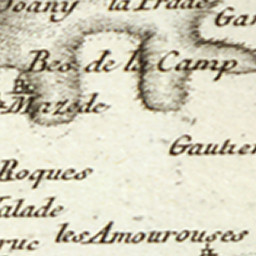 Doany la Prade
Gar
Bes de la Camp
Mazede
Gautier
Roques
alade
ruc les Amourouses